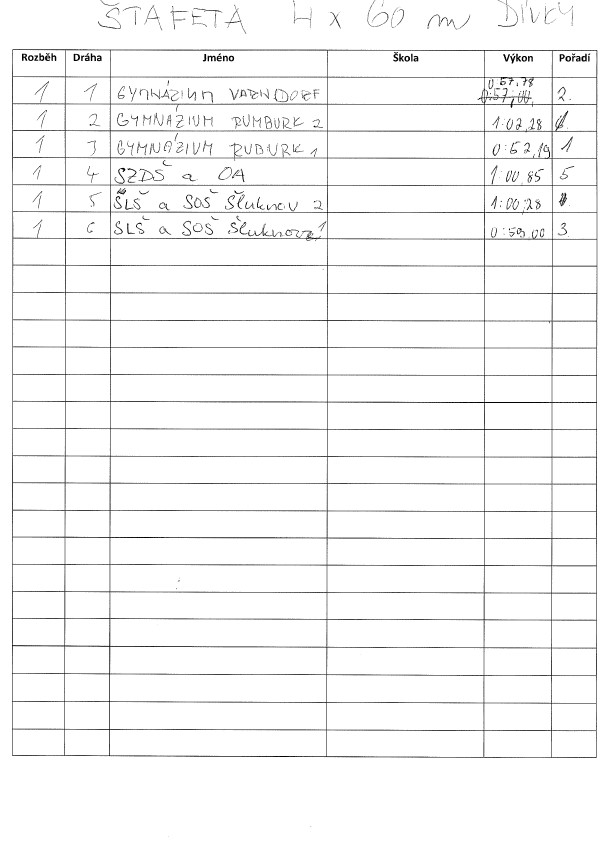 ŠTAFETA 4 x 60 m DÍVKY
Rozběh Dráha Jméno Škola Výkon Pořadí
0:57,78
1 1 GYMNÁZIUM VARNDORF 0:57,00 2.
1 2 GYMNÁZIUM RUMBURK 2 1:02,28
1 3 GYMNÁZIUM RUBURK 1 0:52,19 1
1 4 SZDŠ a OA 1:00,85 5
1 5 SLŠ a SOŠ Šluknov 2 1:00,28
1 6 SLŠ a SOŠ Šluknov 1 0:59,00 3.